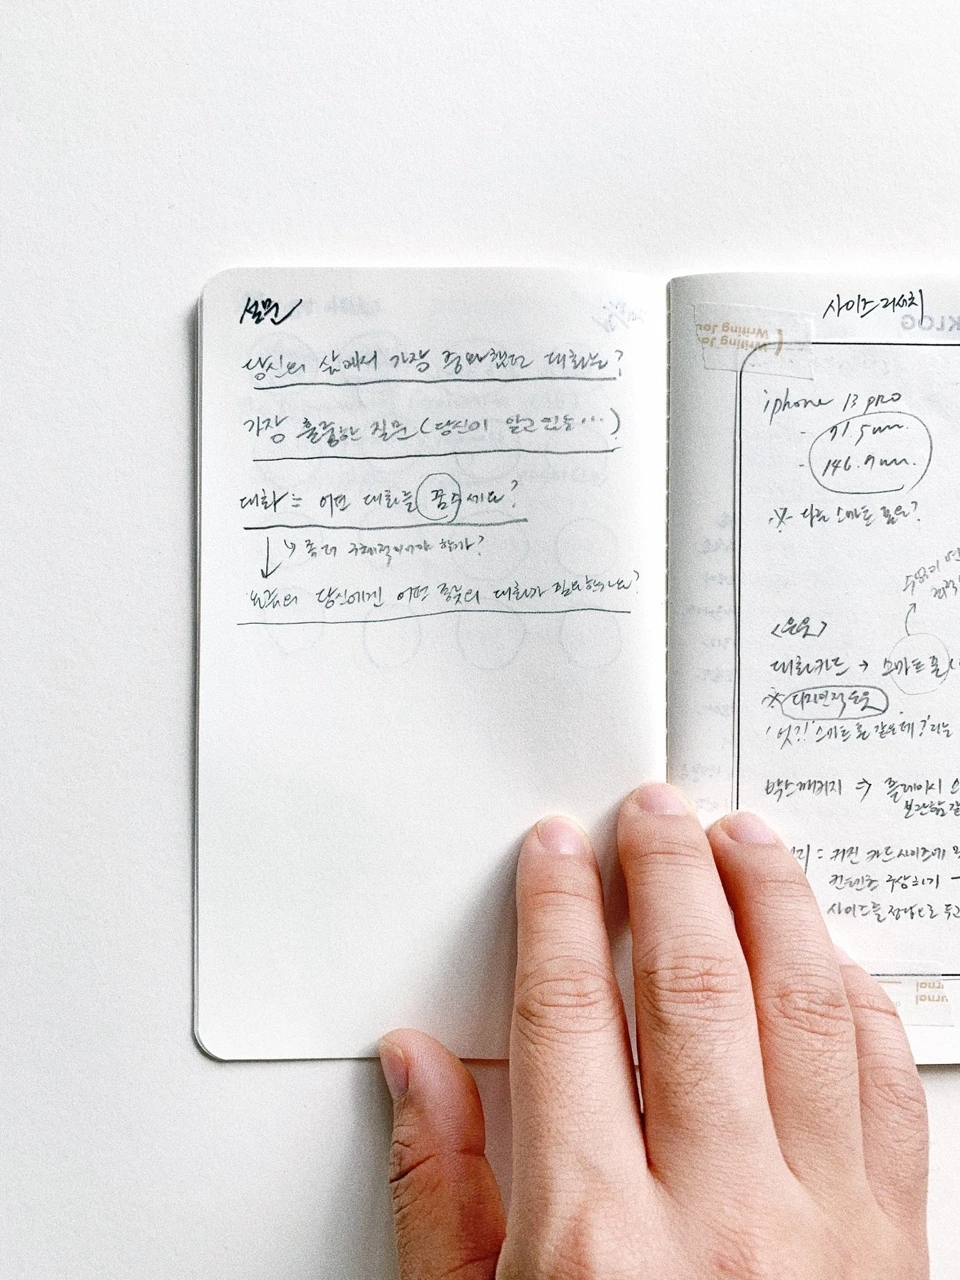 설문
당신의 삶에서 가장 중요했던 대화는?
가장 훌륭한 질문(당신이 알고있는…)
대화 = 어떤 대화를 꿈꾸세요?
↳ 좀 더 구체적이어야 할까?
요즘의 당신에겐 어떤 종류의 대화가 필요한가요?
사이즈 리서치
Writing Jo
Writing Jo
KLOG
iphone 13 pro
- 71.5mm.
- 146.7mm.
※ 다른 스마트폰은?
<은유>
대화카드 → 스마트폰(
※ 디자인적은유
'엇?! 스마트폰 같은데?'라는
박스패키지 ⇒ 플레이시
보관함
= 커진 카드사이즈에
컨텐츠 구상하기 -
사이즈를 정답으로 두고
urnal
urnal